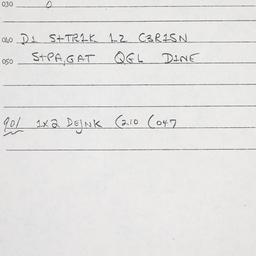 030 0
040 D1 S+TR1K 12 C3R1SN
050 S+PA,GAT QGL D1NE
901 1x2 DEJNK (210 (047